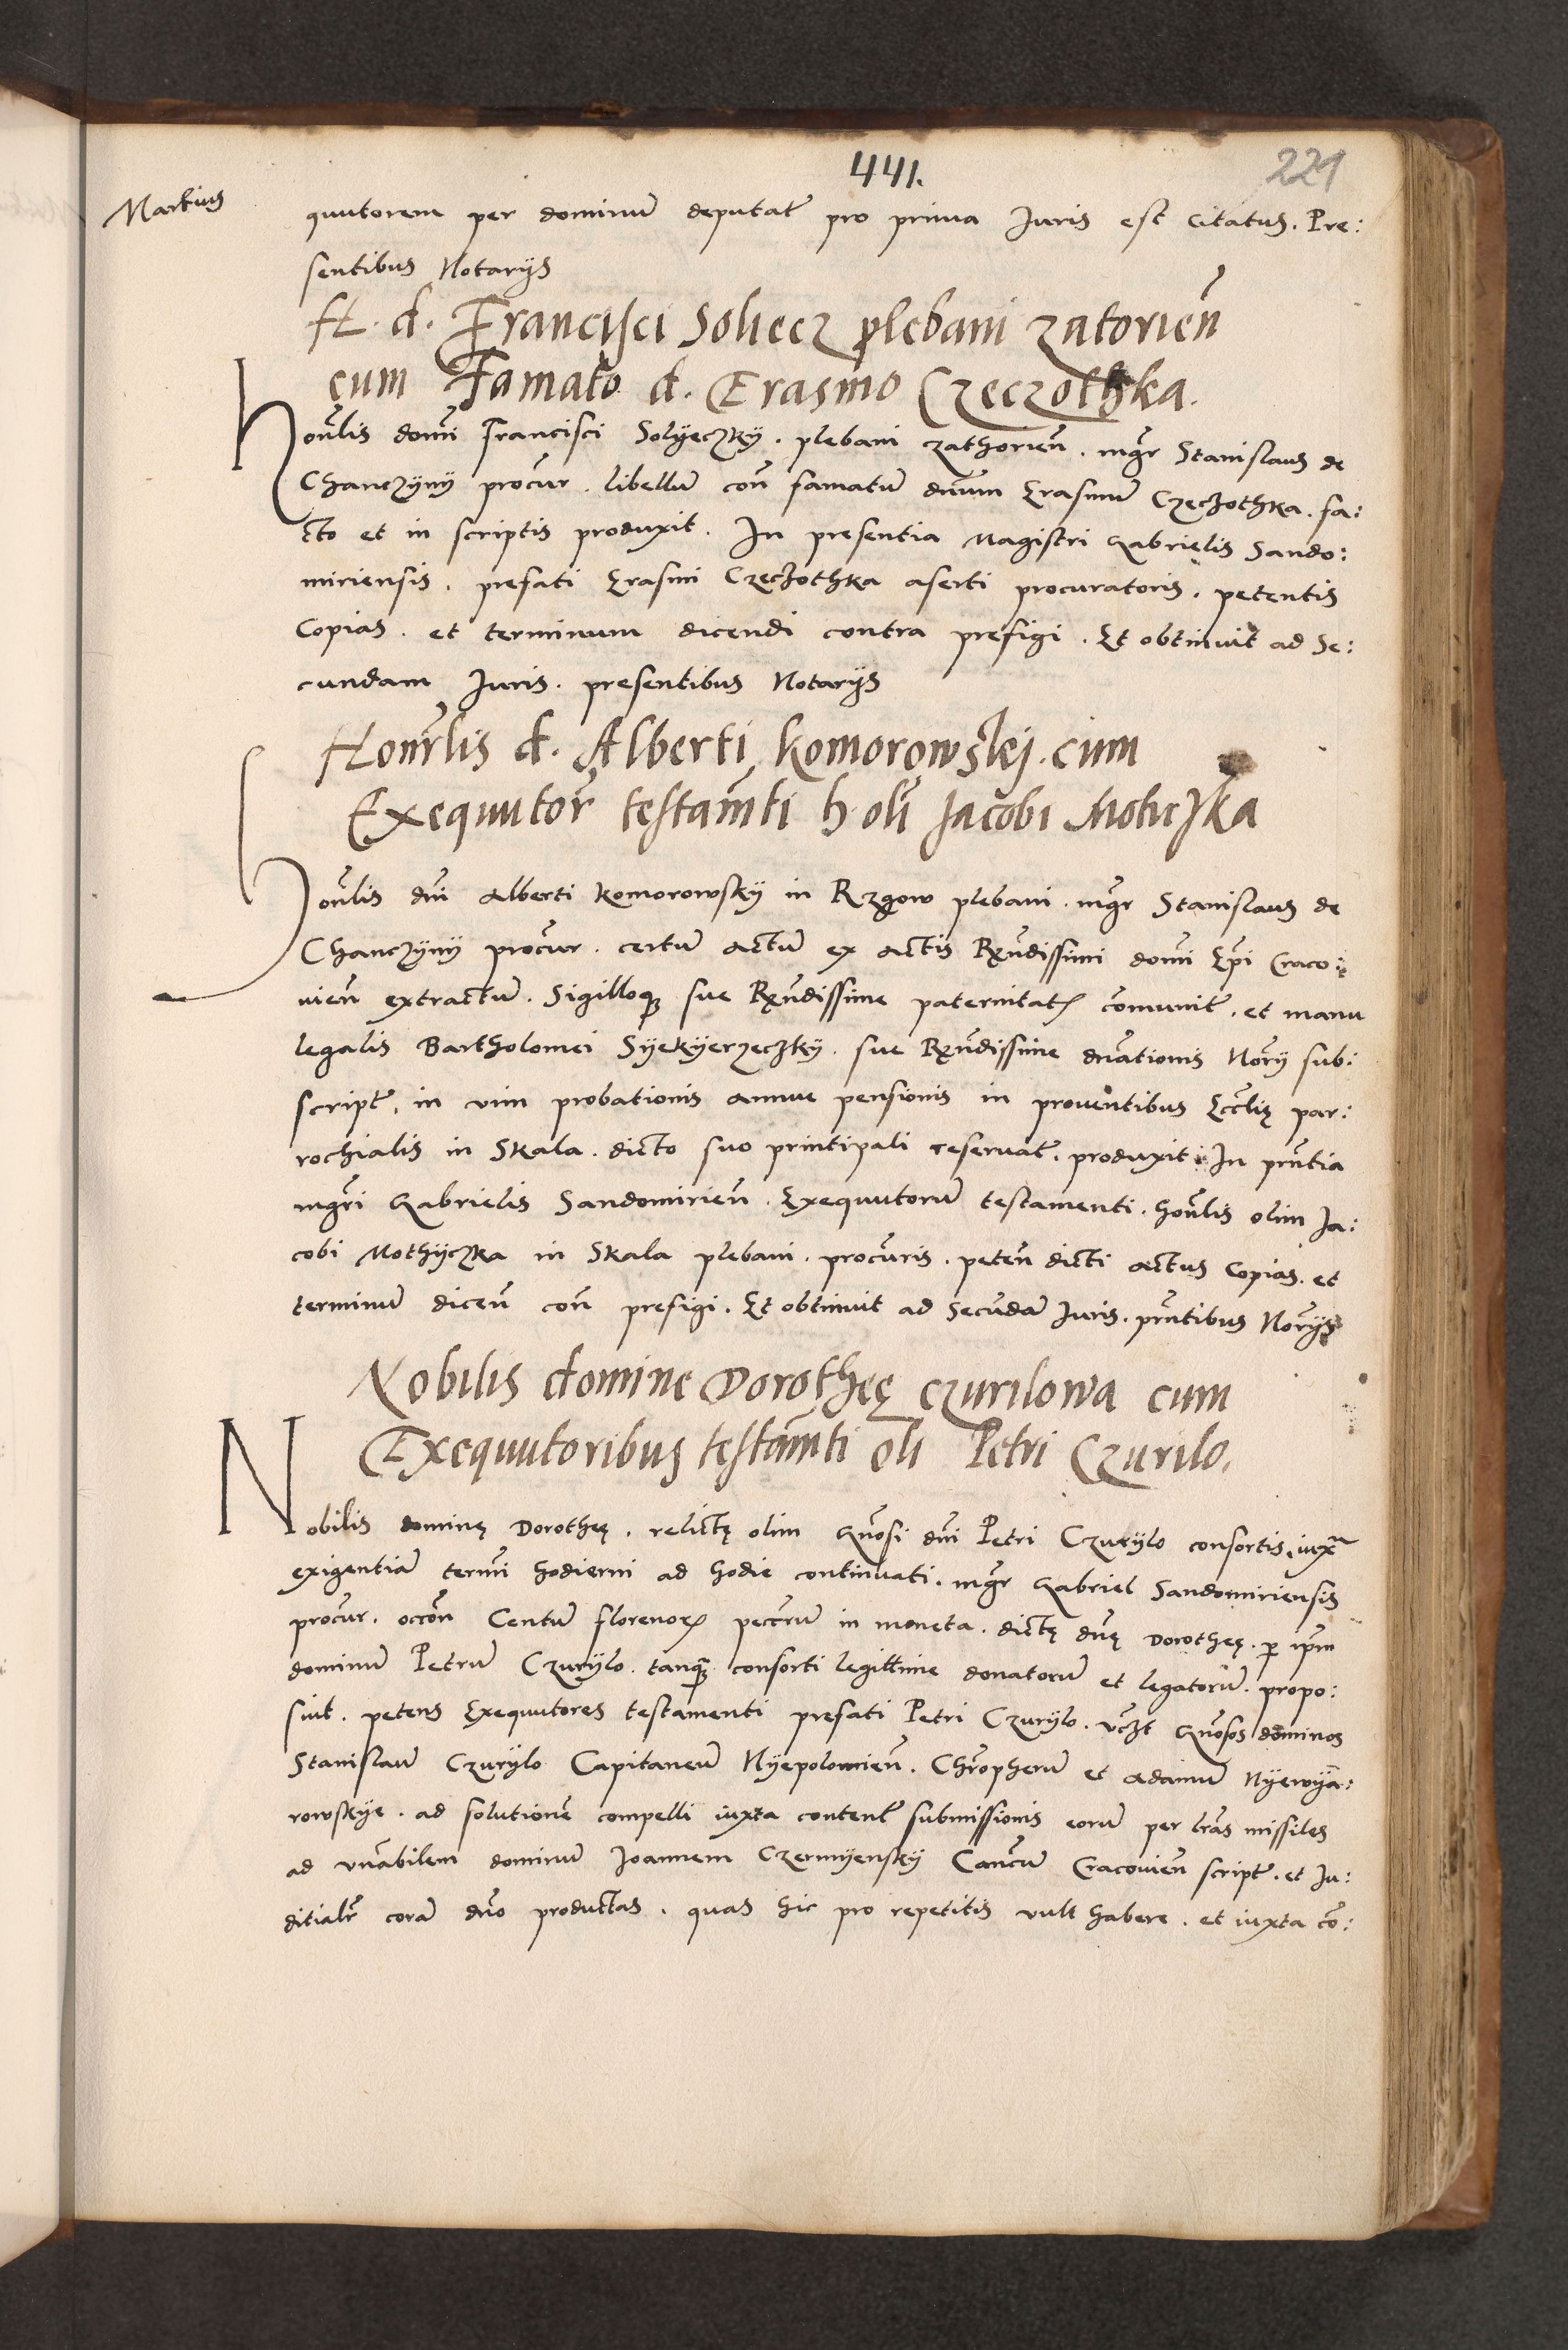 441.
221
Martius
quutorem per dominū deputat̃ pro prima Juris est citatus. Pre:
sentibus Notarijs
H. d. Francisci Soliecz plebani zatorien̄
cum Famato d. Erasmo Czeczothka.
Hon̄lis domī Francisci Solyeczky. plebani zathorien̄. mgr̄ Stanislaus de
Chanczyny procur̄. libellū con̄ famatum dn̄um Erasmū Czeczothka. fa:
cto et in scriptis produxit. In presentia Magistri Gabrielis Sando:
miriensis. prefati Erasmi Czeczothka aserti procuratoris. petentis
Copias. et terminum dicendi contra prefigi. Et obtinuit ad Se:
cundam Juris. presentibus Notarijs
Honr̄lis d. Alberti komorowskj. cum
Exequutor̄ testam̄ti h. oli̅ Jacobi Moticzka
Hon̄lis dn̄i Alberti Komorowsky in Rzgow plebani. mgr̄ Stanislaus de
Chanczyny procur̄. certū actū ex actis Rn̄dissimi domī Ep̄i Craco:
uien̄ extractū. Sigilloq; sue Rn̄dissime paternitatꝭ com̄unit̃. et manu
legalis Bartholomei Syekyerzeczky. sue Rn̄dissime dn̄ationis Nor̄ij sub:
script̃. in vim probationis annue pensionis in prouentibus Eccl̄ię par:
rochialis in Skala. dicto suo principali reseruat̃. produxit. In prn̄tia
mgr̄i Gabrielis Sandomirien̄. Exequutorū testamenti. hon̄lis olim Ja:
cobi Mothyczka in Skala plebani. procur̄is. peten̄ dicti actus Copias. et
terminū dicen̄ con̄ prefigi. Et obtinuit ad Secundā Juris. prn̄tibus Nor̄ijs
Nobilis domine Dorotheę czurilowa cum
Exequutoribus testam̄ti oli̅ Petri Czurilo.
Nobilis dominę Dorotheę. relictę olim Gn̄osi dn̄i Petri Czurylo consortis. iuxᵃ
exigentiā termī hodierni ad hodie continuati. mgr̄ Gabriel Sandomiriensis
procur̄. occōn Centū florenoꝝ pecc̄rū in moneta. dictę dn̄ę Dorotheę. ꝑ ip̄m
dominū Petrū Czurylo. tanq̄ consorti legitt̄ime donatorū et legatorū. propo:
suit. petens Exequutores testamenti prefati Petri Czurylo. vcz̄t Gn̄osos dominos
Stanislaū Czurylo Capitaneū Nyepolomien̄. Chr̄opherū et Adamū Nyewya:
rowskye. ad solutionē compelli iuxta content̃ submissionis eorū per lr̄as missiles
ad vn̄abilem dominū Joannem Czermyensky Can̄cum Cracouien̄ script̃. et Ju:
ditialr̄ corā dn̄o productas. quas hic pro repetitis vult habere. et iuxta cō: